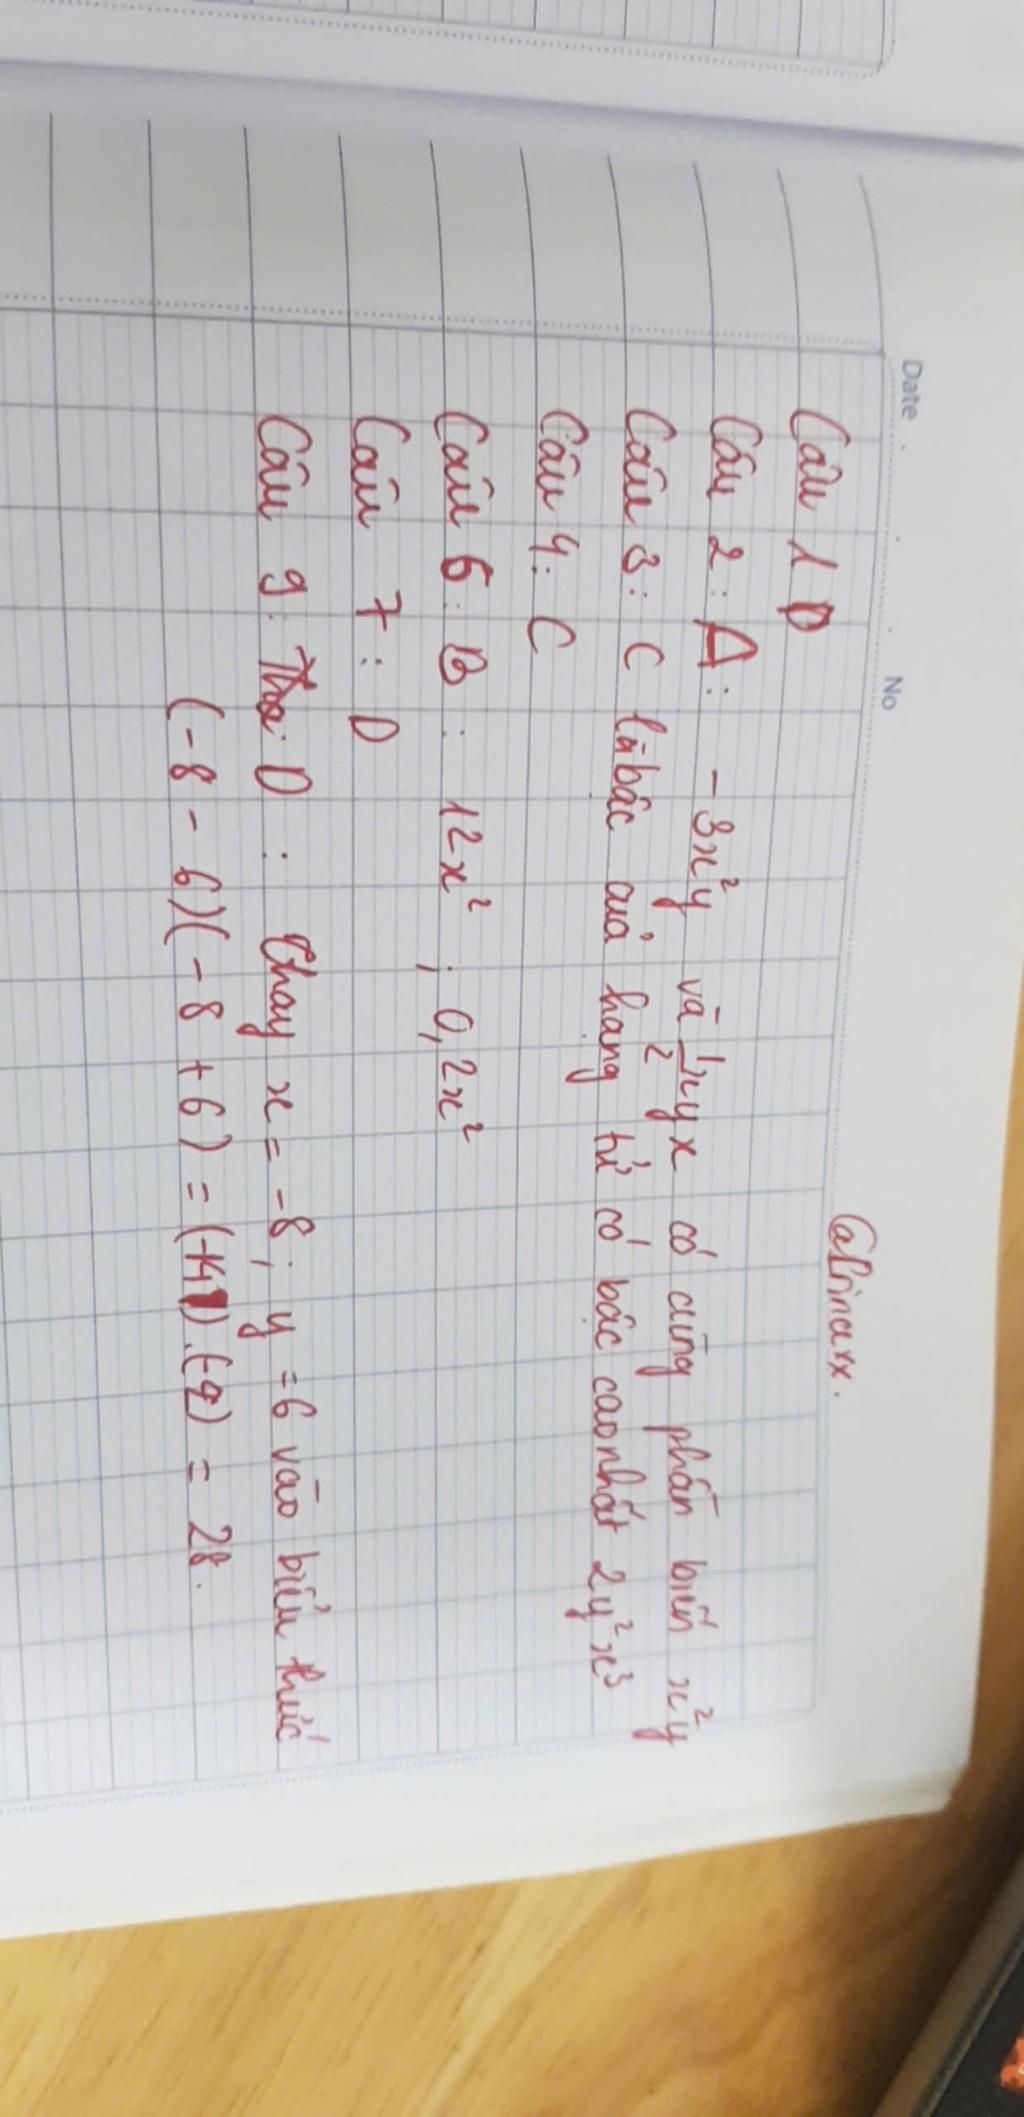 Date No
@alrinaxx.
Câu 1 D
Câu 2: A: -3x²y và 1/2xyx có cùng phần biến x²y
Câu 3: C là bậc của hạng tử có bậc cao nhất 2y²x³
Câu 4: C
Câu 6: B: 12x²; 0,2x²
Câu 7: D
Câu 9: D: Thay x = -8; y = 6 vào biểu thức
(-8 - 6)(-8 + 6) = (-14).(-2) = 28.